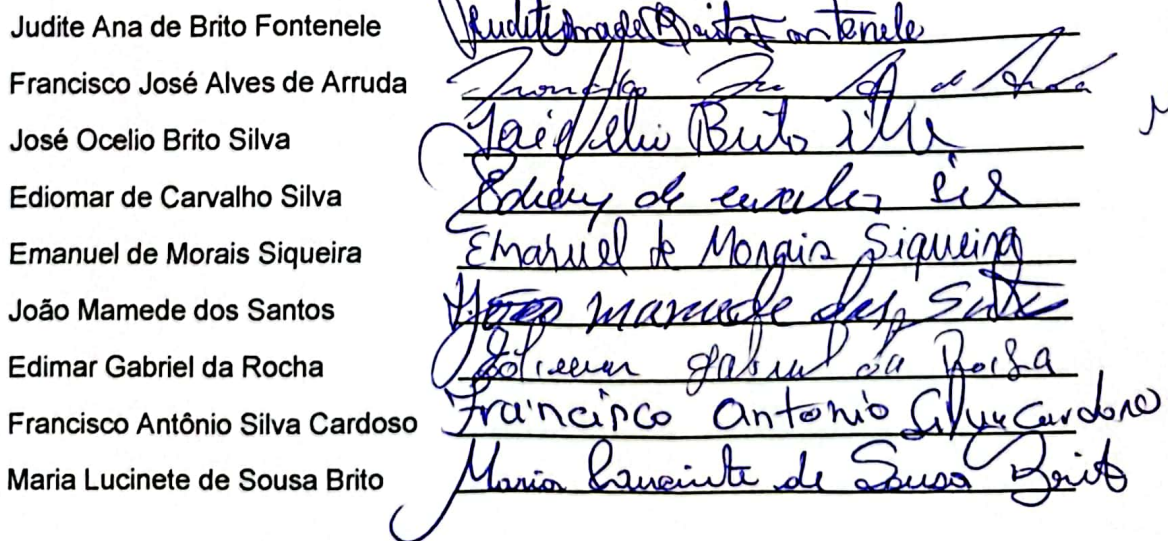 Judite Ana de Brito Fontenele Judite Ana de Brito Fontenele
Francisco José Alves de Arruda
José Ocelio Brito Silva Brito
Ediomar de Carvalho Silva de
Emanuel de Morais Siqueira Emanuel de Morais Siqueira
João Mamede dos Santos João mamede dos
Edimar Gabriel da Rocha gabriel da Rocha
Francisco Antônio Silva Cardoso Francisco antonio Silva Cardoso
Maria Lucinete de Sousa Brito Maria Lucinete de Sousa Brito